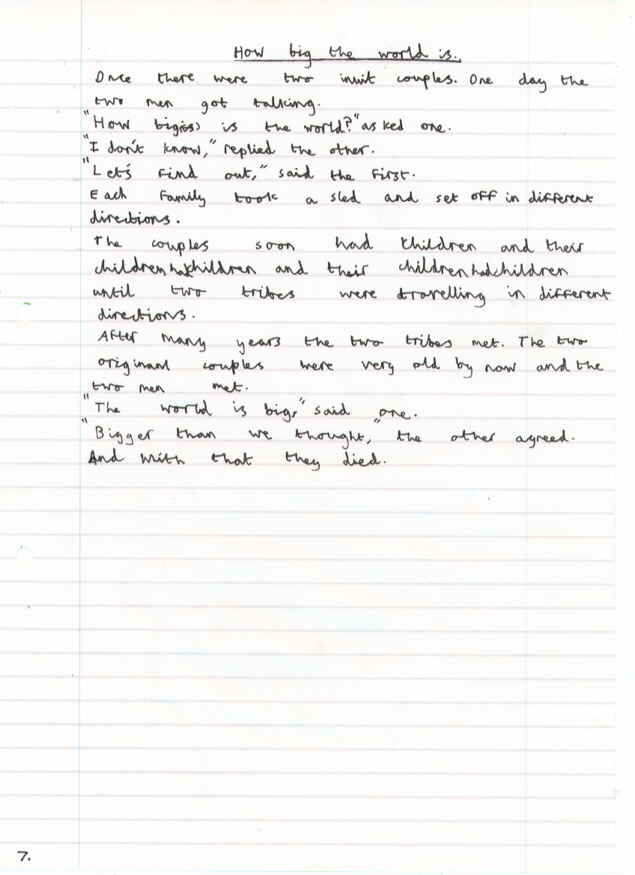 How big the world is.
Once there were two inuit couples. One day the
two men got talking.
"How big is the world?" asked one.
"I don't know," replied the other.
"Let's find out," said the first.
Each family took a sled and set off in different
directions.
The couples soon had children and their
children had children and their children had children
until two tribes were travelling in different
directions.
After many years the two tribes met. The two
original couples were very old by now and the
two men met.
"The world is big," said one.
"Bigger than we thought," the other agreed.
And with that they died.
7.